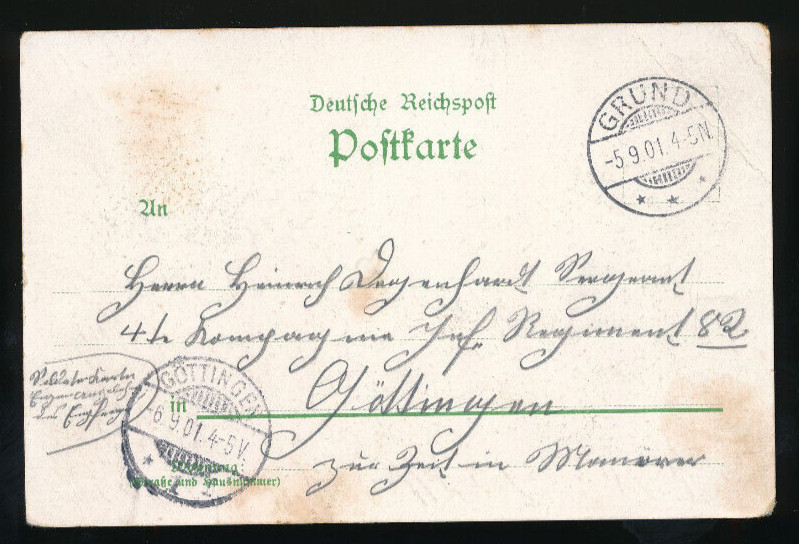 Deutsche Reichspost
Postkarte
GRUND
-5.9.01.4-5N.
An
Herrn Heinrich Degenhardt Sergeant
4te Kompagnie Inf. Regiment 82
Soldaten Karte
Eigene Angelegenheit
des Empfängers
GÖTTINGEN
-6.9.01.4-5V.
in Göttingen
zur Zeit in Manöver
Wohnung
(Straße und Hausnummer)